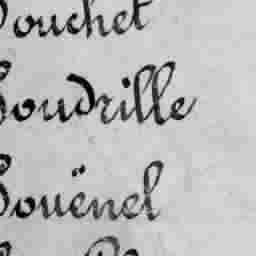 Souchet
Soudrille
Souënel